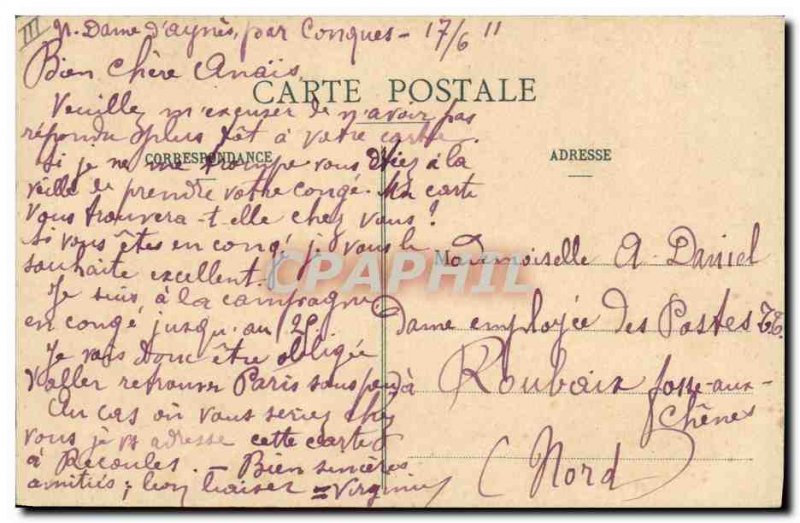 III
N. Dame d'aynès, par Conques - 17/6 11
Bien chère Anaïs,
CARTE POSTALE
Veuillez m'excuser de n'avoir pas
répondu plus tôt à votre carte.
CORRESPONDANCE
ADRESSE
Si je ne me trompe vous étiez à la
veille de prendre votre congé. Ma carte
vous trouvera-t-elle chez vous?
Si vous êtes en congé, je vous le
souhaite excellent.
Je suis à la campagne
en congé jusqu'au 25.
Je vais donc être obligée
d'aller retrouver Paris sous peu
Au cas où vous seriez chez
vous je vs adresse cette carte
à Recoules. - Bien sincères
amitiés; bon baiser = Virginie
Mademoiselle A. Daniel
dame employée des Postes TT.
à Roubaix fosse-aux-
Chênes
(Nord)
CPAPHIL